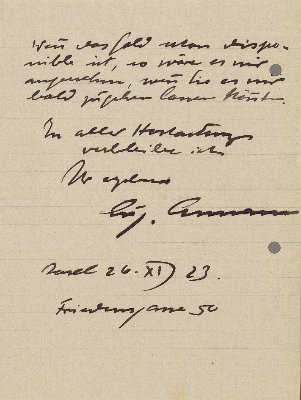 Wenn das Geld schon dispo-
nibel ist, so wäre es mir
angenehm, wenn Sie es mir
bald zugehen lassen könnten.
In aller Hochachtung
verbleibe ich
Ihr ergebener
Eug. Ammann
Basel 26. XI 23.
Friedensgasse 50